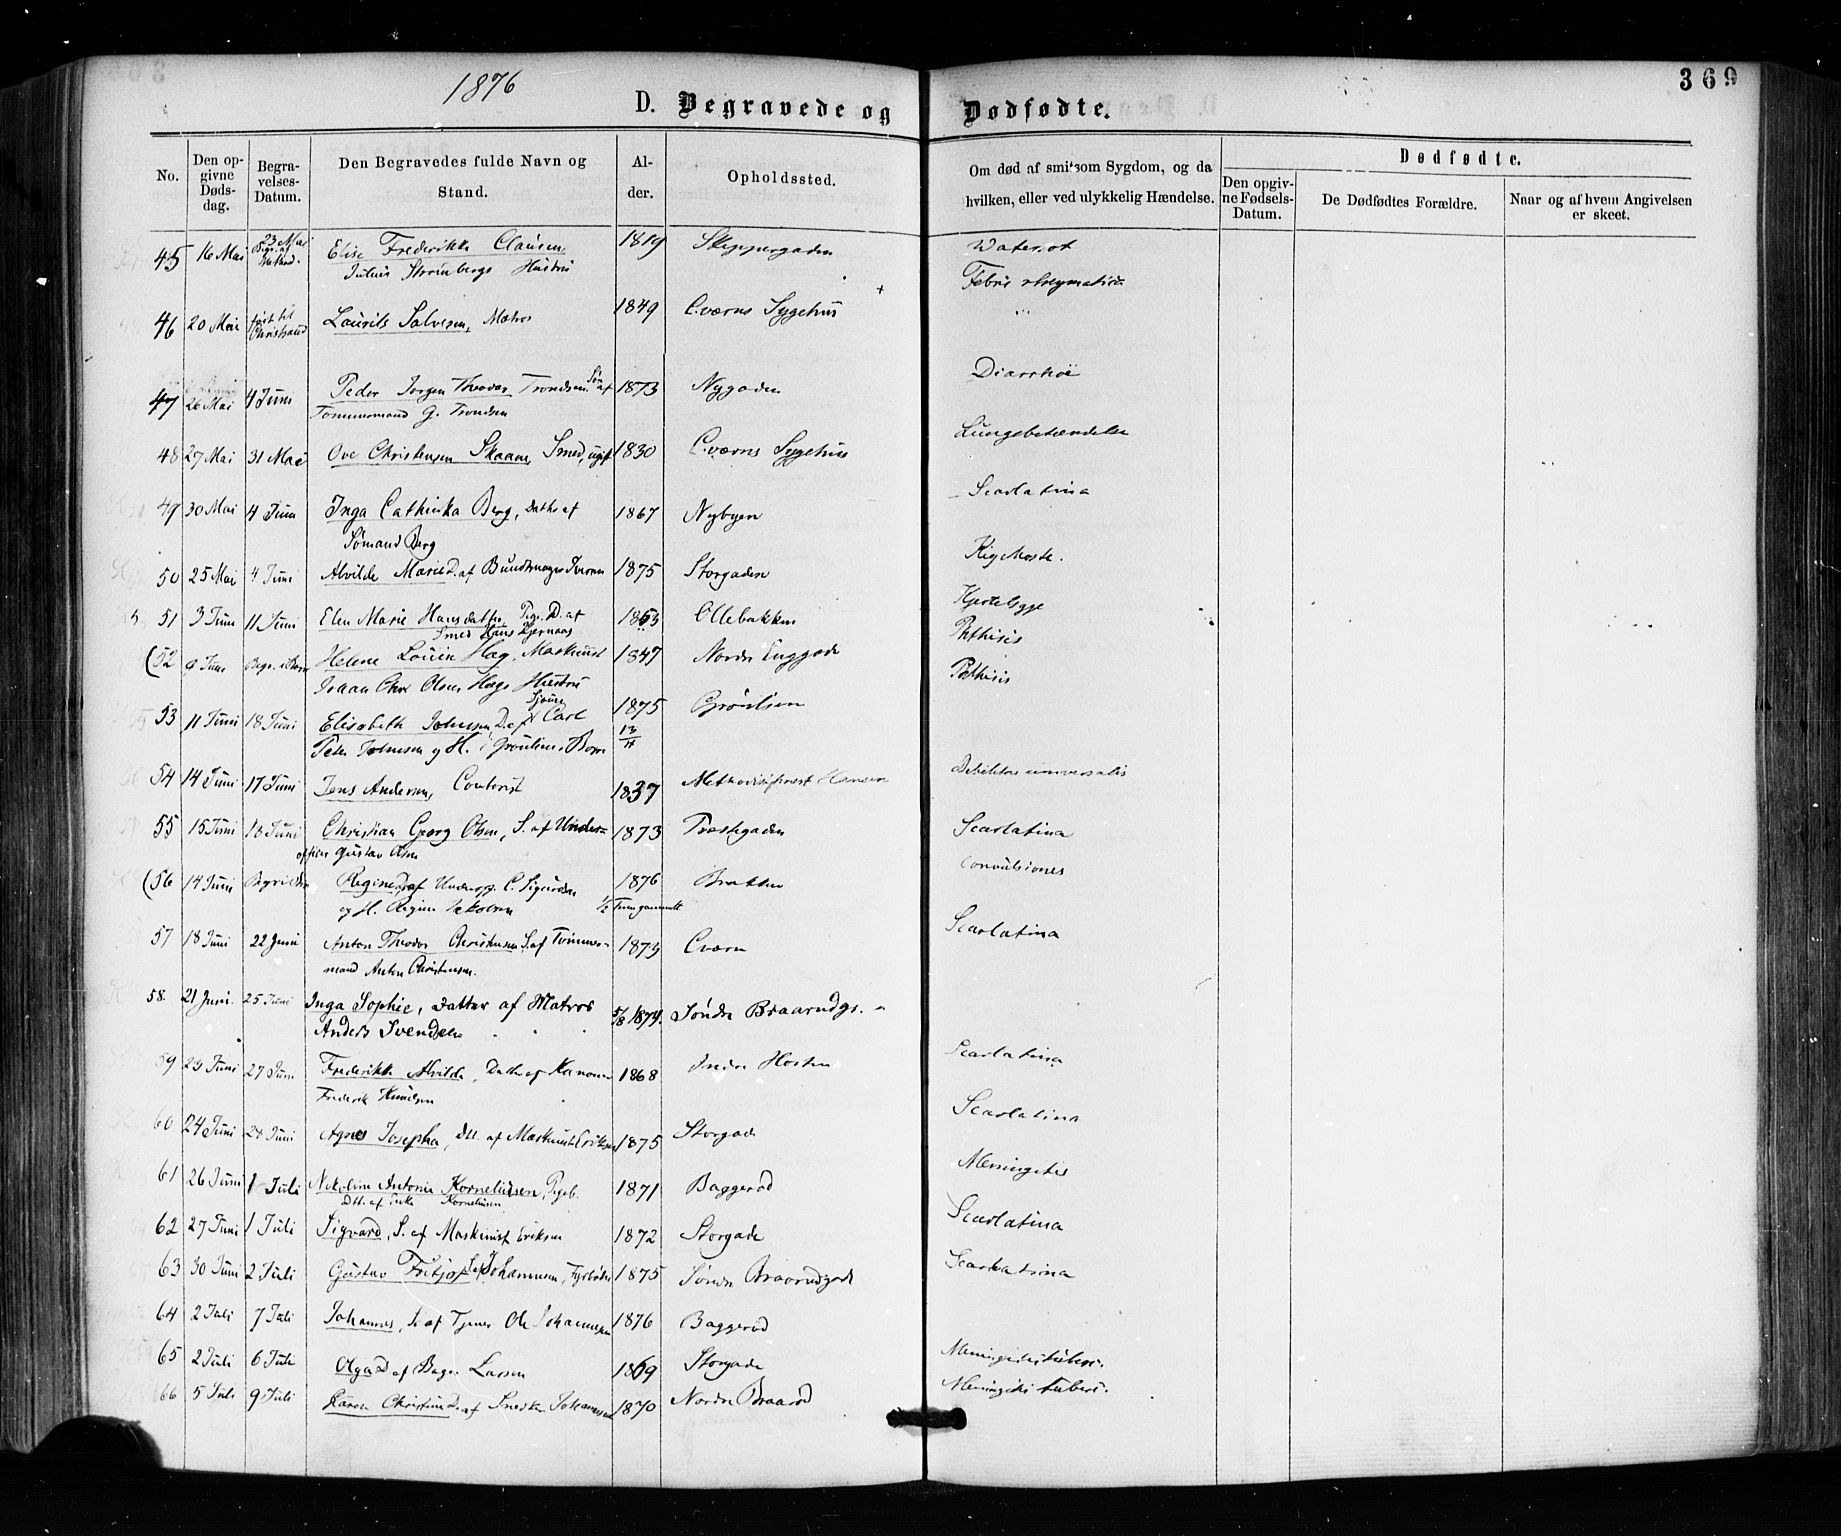 1876
369
D. Begravede og Dødfødte.
No.
Den opgivne Dødsdag.
Begravelses-Datum.
Den Begravedes fulde Navn og Stand.
Alder.
Opholdssted.
Om død af smitsom Sygdom, og da hvilken, eller ved ulykkelig Hændelse.
Dødfødte.
Den opgivne Fødsels-Datum.
De Dødfødtes Forældre.
Naar og af hvem Angivelsen er skeet.
45 16 Mai 23 Mai Elise Frederikke Clausen, 1819 Skippergaden
Julius Strømbergs Hustru
46 20 Mai ført til Christsand Laurits Salvesen, Matros 1849 C.værns Sygehus Febris rheumatica
47 26 Mai 4 Juni Peder Jørgen Theodor Trondsen Søn af 1873 Nygaden Diarrhöe
Tømmermand G. Trondsen
48 27 Mai 31 Mai Ove Christensen Skaane, Smed, ugift 1830 C.værns Sygehus Lungebetændelse
49 30 Mai 4 Juni Inga Cathinka Berg, Datter af 1867 Nybyen Scarlatina
Sømand Berg
50 25 Mai 4 Juni Alvilde Marie D. af Buntmager Iversen 1875 Storgaden Kighoste.
51 3 Juni 11 Juni Elen Marie Hansdatter, Pige. D. af 1863 Ollebakken Hjertesyge
Smed Hans
(52 Juni Helene Lovise Hæg, Maskinist 1847 Nordre Enggade Phthisis
Johan Chr Olsen Hægs Hustru
53 11 Juni 18 Juni Elisabeth Johnsen, D. af Carl 1875 Grønlien Phthisis
Peter Johnsen og H. i Grønlien, Barn 13
54 14 Juni 17 Juni Jens Andersen, Contorist 1837 Methodistpræst Hansen Debilitas universalis
55 15 Juni 18 Juni Christian Georg Olsen, S. af Under- 1873 Træskegaden Scarlatina
officer Gustav Olsen
(56 14 Juni Regine D. af Underoff. C. Sigurdsen 1876 Bratten Convulsiones
og H. Regine Jakobsen ½ Time gammelt
57 18 Juni 22 Juni Anton Theodor Christensen S. af Tømmer- 1873 C.værn Scarlatina
mand Anton Christensen.
58. 21 Juni. 25 Juni Inga Sophie, Datter af Matros 5/8 1874. Søndre Braarudgs.
Anders Svendsen
59 23 Juni 27 Juni Frederikke Alvilde, Datter af Kanoner 1868 Indre Horten Scarlatina
Frederik Knudsen
60 24 Juni 28 Juni Agnes Josepha, Dtt. af Maskinist Eriksen 1875 Storgade Scarlatina
61 26 Juni 1 Juli Nikoline Antonie Korneliussen, Pigeb. 1871 Baggerød Meningitis
Dtt. af Korneliussen
62 27 Juni 1 Juli Sigvard, S. af Maskinist Eriksen 1872 Storgade Scarlatina
63 30 Juni 2 Juli Gustav Fritjof S. af Johannesen, Fyrbøder 1875 Søndre Braarudgade Scarlatina
64 2 Juli 7 Juli Johannes, S. af Tjener Ole Johannesen 1876 Baggerød
65 2 Juli 6 Juli Olga D. af Bager Larsen 1869 Storgade Meningitis tuberc.
66 5 Juli 9 Juli Karen Christine D. af Smed Johannesen 1870 Nordre Braarød Meningitis tuberc.